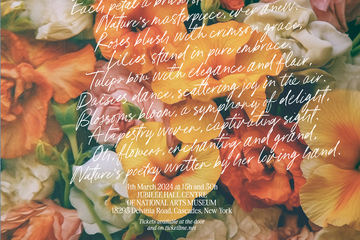 Each petal a brushst
Nature's masterpiece, ever anew.
Roses blush with crimson grace,
Lilies stand in pure embrace.
Tulips bow with elegance and flair,
Daisies dance, scattering joy in the air.
Blossoms bloom, a symphony of delight,
A tapestry woven, captivating sight.
Oh, flowers, enchanting and grand,
Nature's poetry, written by her loving hand.
4th March 2024 at 15h and 30h
JUBILEE HALL CENTRE
OF NATIONAL ARTS MUSEUM
18295 Delvinia Road, Cascades, New York
Tickets available at the door
and on ticketline.net